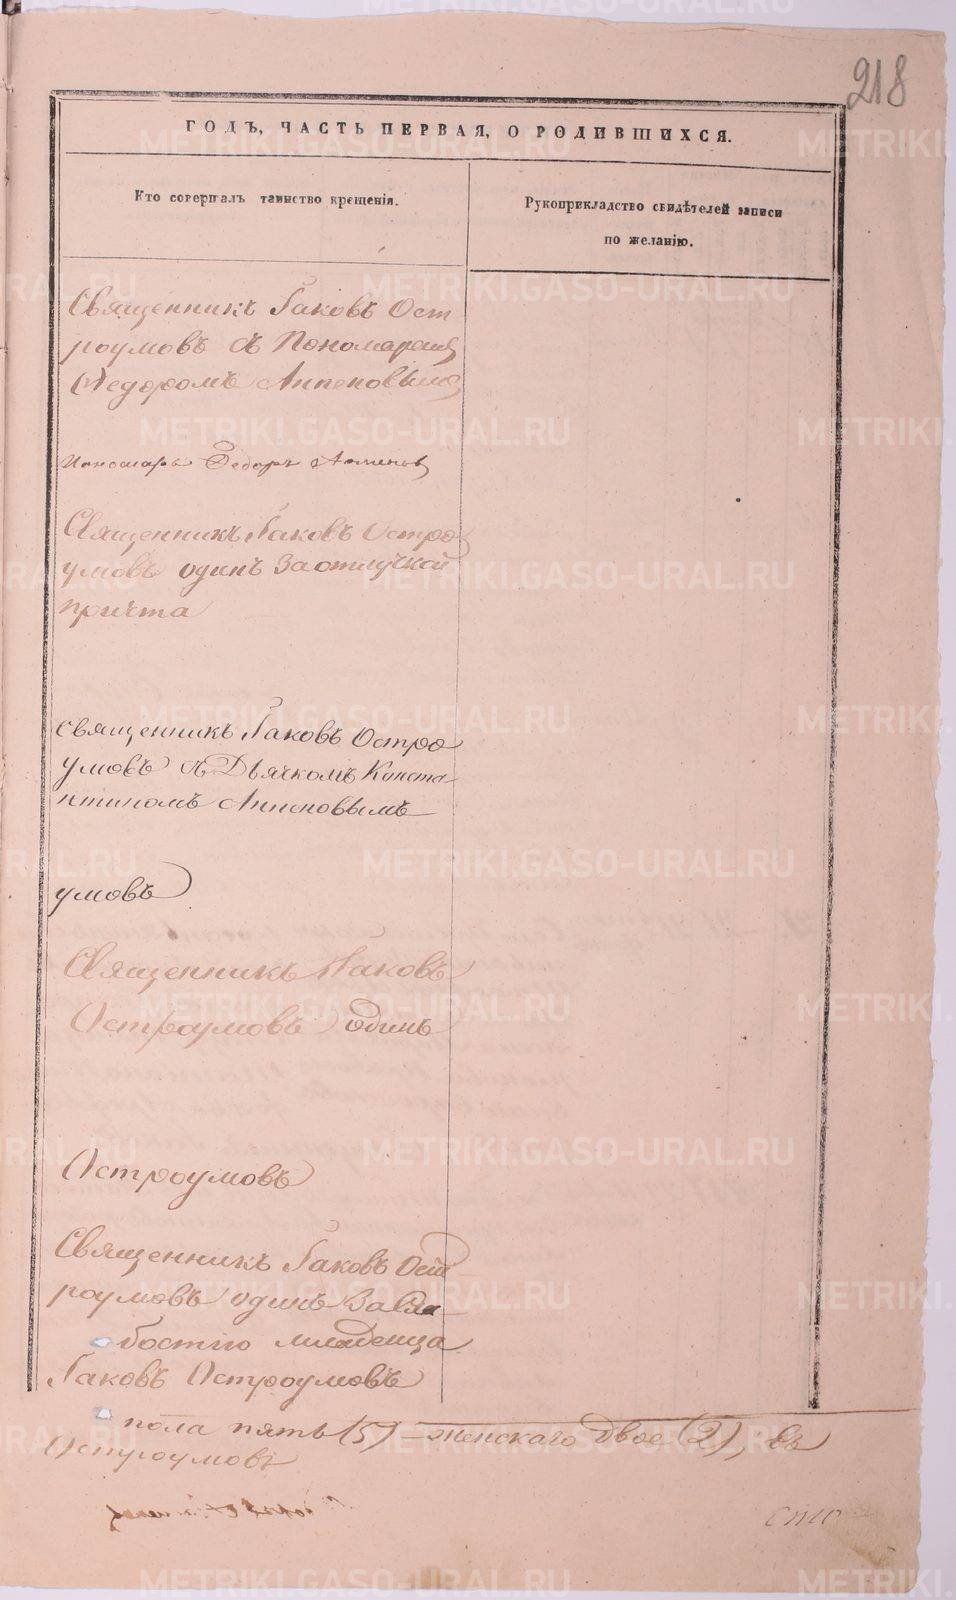 218
ГОДЪ, ЧАСТЬ ПЕРВАЯ, О РОДИВШИХСЯ.
Кто совершалъ таинство крещенія.
Рукоприкладство свидѣтелей записи
по желанію.
Священникъ Іаковъ Ост
роумовъ съ Пономаремъ
Ѳедоромъ
Пономарь Ѳедоръ
Священникъ Іаковъ Остро
умовъ одинъ За отлучкой
причта
священникъ Іаковъ Остро
умовъ съ Дьячкомъ Конста
нтиномъ
умовъ
Священникъ Іаковъ
Остроумовъ одинъ
Остроумовъ
Священникъ Іаковъ Ост
роумовъ одинъ За сла
бостію младенца
Іаковъ Остроумовъ
пола пять (5) – женскаго двое (2), въ
Остроумовъ
METRIKI.GASO-URAL.RU